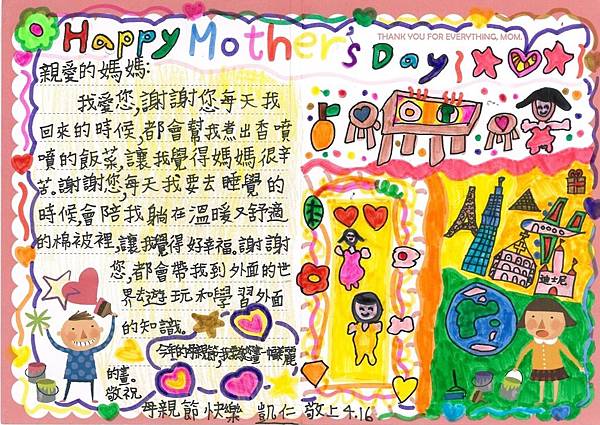 Happy Mother's Day
THANK YOU FOR EVERYTHING, MOM.
親愛的媽媽:
我愛您,謝謝您每天我
回來的時候,都會幫我煮出香噴
噴的飯菜,讓我覺得媽媽很辛
苦。謝謝您,每天我要去睡覺的
時候,會陪我躺在溫暖又舒適
的棉被裡,讓我覺得好幸福。謝謝
您,都會帶我到外面的世
界去遊玩和學習外面
的知識。
的畫。
敬祝
母親節快樂 凱仁 敬上4.16
迪士尼